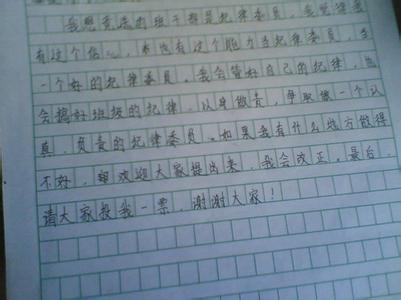 我想竞选的班干部是纪律委员，我觉得我
有这个信心，也有这个能力当纪律委员，当
一个好的纪律委员，我会管好自己的纪律，也
会搞好班级的纪律，以身做责，争取做一个认
真，负责的纪律委员，如果我有什么地方做得
不好，欢迎大家提出来，我会改正，最后，
请大家投我一票，谢谢大家！